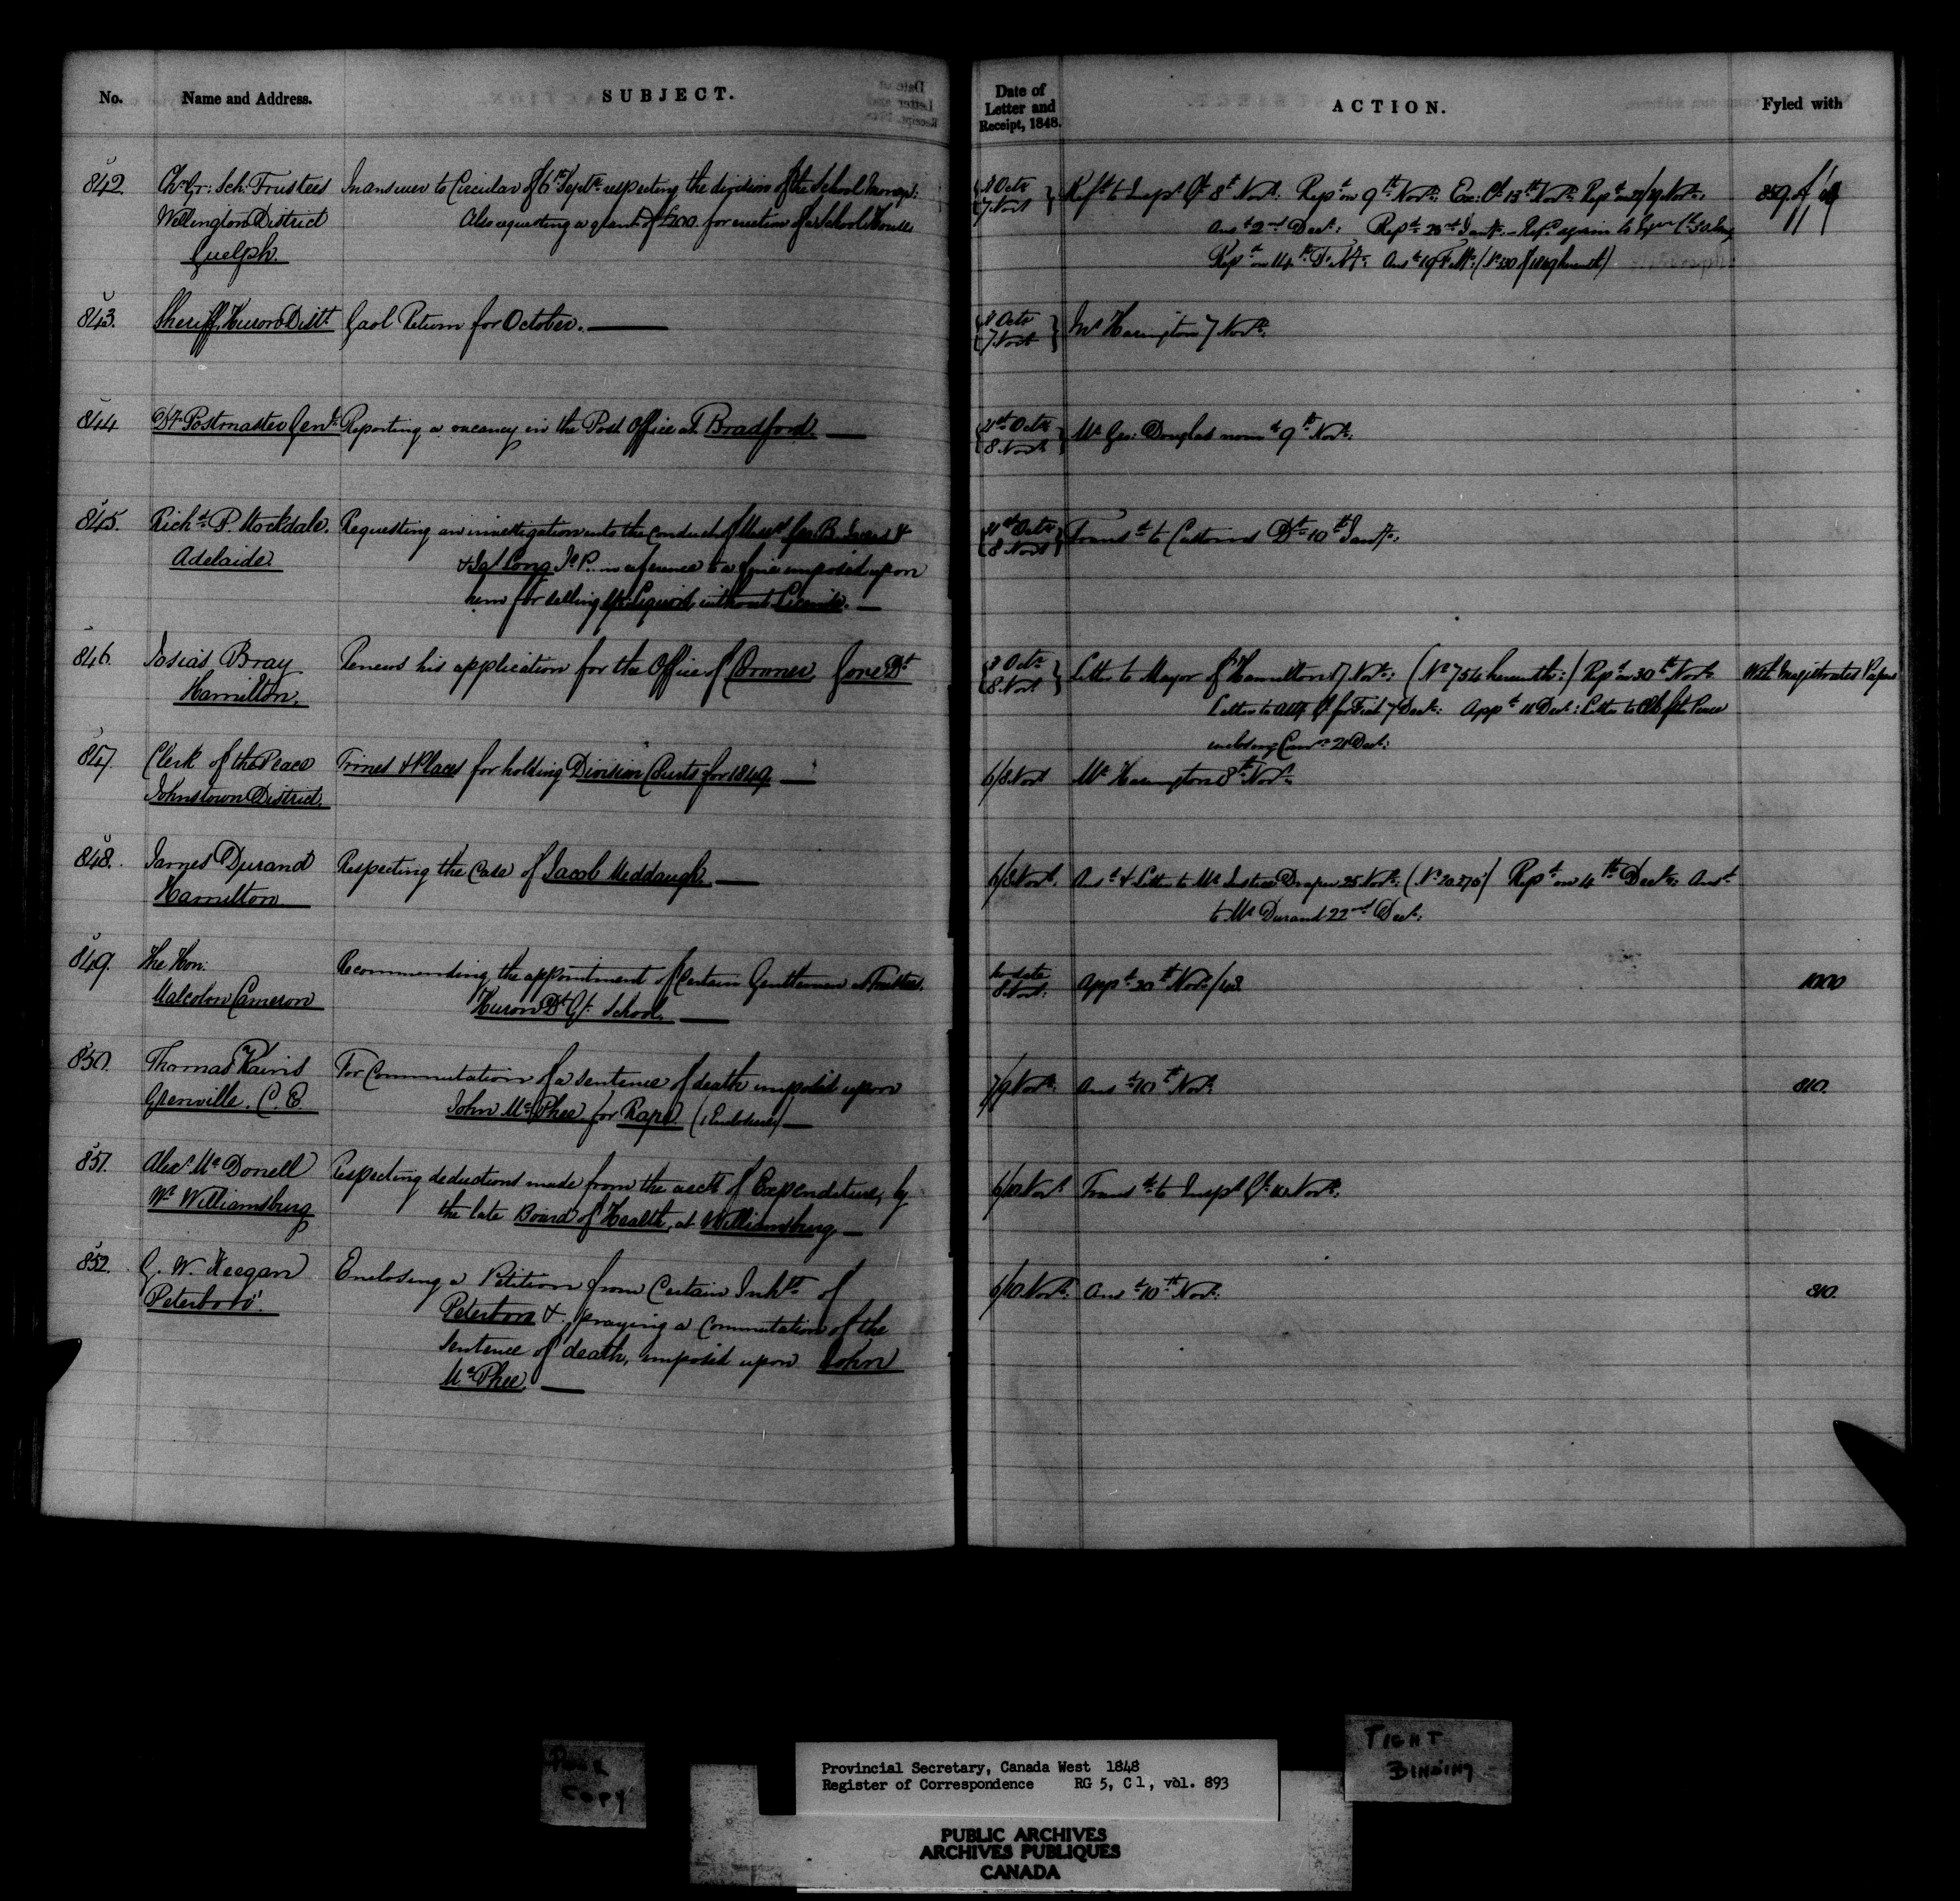 No. Name and Address. SUBJECT.
842 Chn Gr: Sch: Trustees In answer to Circular of 6th Sept: respecting the division of the School moneys:
Wellington District Also requesting a grant of £200 for erection of a School House
Guelph.
843. Sheriff, Huron Distt Gaol Return for October.
844 Dy Postmaster Genl Reporting a vacancy in the Post Office at Bradford.
845. Richd P. Stockdale. Requesting an investigation into the conduct of Messrs Geo: B.
Adelaide. Long J.P. in reference to a fine imposed upon
him for selling Sp: Liquors without License.
846. Josias Bray Renews his application for the Office of Coroner, Gore Dt
Hamilton.
847. Clerk of the Peace Times & Places for holding Division Courts for 1849
Johnstown District.
848. James Durand Respecting the Case of Jacob Meddaugh.
Hamilton
849. The Hon: Recommending the appointment of certain Gentlemen as Trustees,
Malcolm Cameron Huron Dt Gr. School.
850. Thomas Kains For Commutation of a sentence of death imposed upon
Grenville. C.E. John McPhee, for Rape. (1 Enclosure)
851. Alexr McDonell Respecting deductions made from the acct of Expenditure, by
Wt Williamsburg the late Board of Health, at Williamsburg
852. G. W. Keegan Enclosing a Petition from Certain Inhts of
Peterboro'. Peterboro &. praying a commutation of the
sentence of death, imposed upon John
McPhee.
Date of Letter and Receipt, 1848. ACTION. Fyled with
Oct: 7 Novr Refd to Inspr Gl 8th Novr: Repd on 9th Novr: Ex: Cl 13th Novr: Repd on 859 of
Ansd 2nd Decr: Repd 23rd Jany: Refd again to
Repd on 14th Feby: Ansd 19 Feby: (No 130 of 1849 herewith)
Oct: 7 Novr Mr Harington 7 Novr:
31st Octr 8 Novr Mr Geo: Douglas nomd 9th Novr:
31st Octr 8 Novr Transd to Customs Dt 10th Jany:
Octr 8 Novr Letter to Mayor of Hamilton 17 Novr: (No 754 herewith:) Repd on 30th Novr: With Magistrates Papers
Letter to Atty Gl for Fiat 7 Decr: Appd 11 Decr: Letter to Clk of the Peace
enclosing Comn 21 Decr:
6/8 Novr Mr Harington 8th Novr:
6/8 Novr. Ansd & Letter to Mr Justice Draper 25 Novr: (No 20275) Repd on 4th Decr: Ansd
to Mr Durand 22nd Decr:
No date 8 Novr: Appd 20th Novr/48 1000
7/9 Novr: Ansd 10th Novr: 810.
6/10 Novr Transd to Inspr Gl: 10 Novr:
6/10 Novr: Ansd 10th Novr: 810.
POOR
COPY
Provincial Secretary, Canada West 1848
Register of Correspondence RG 5, C 1, vol. 893
TIGHT
BINDING
PUBLIC ARCHIVES
ARCHIVES PUBLIQUES
CANADA